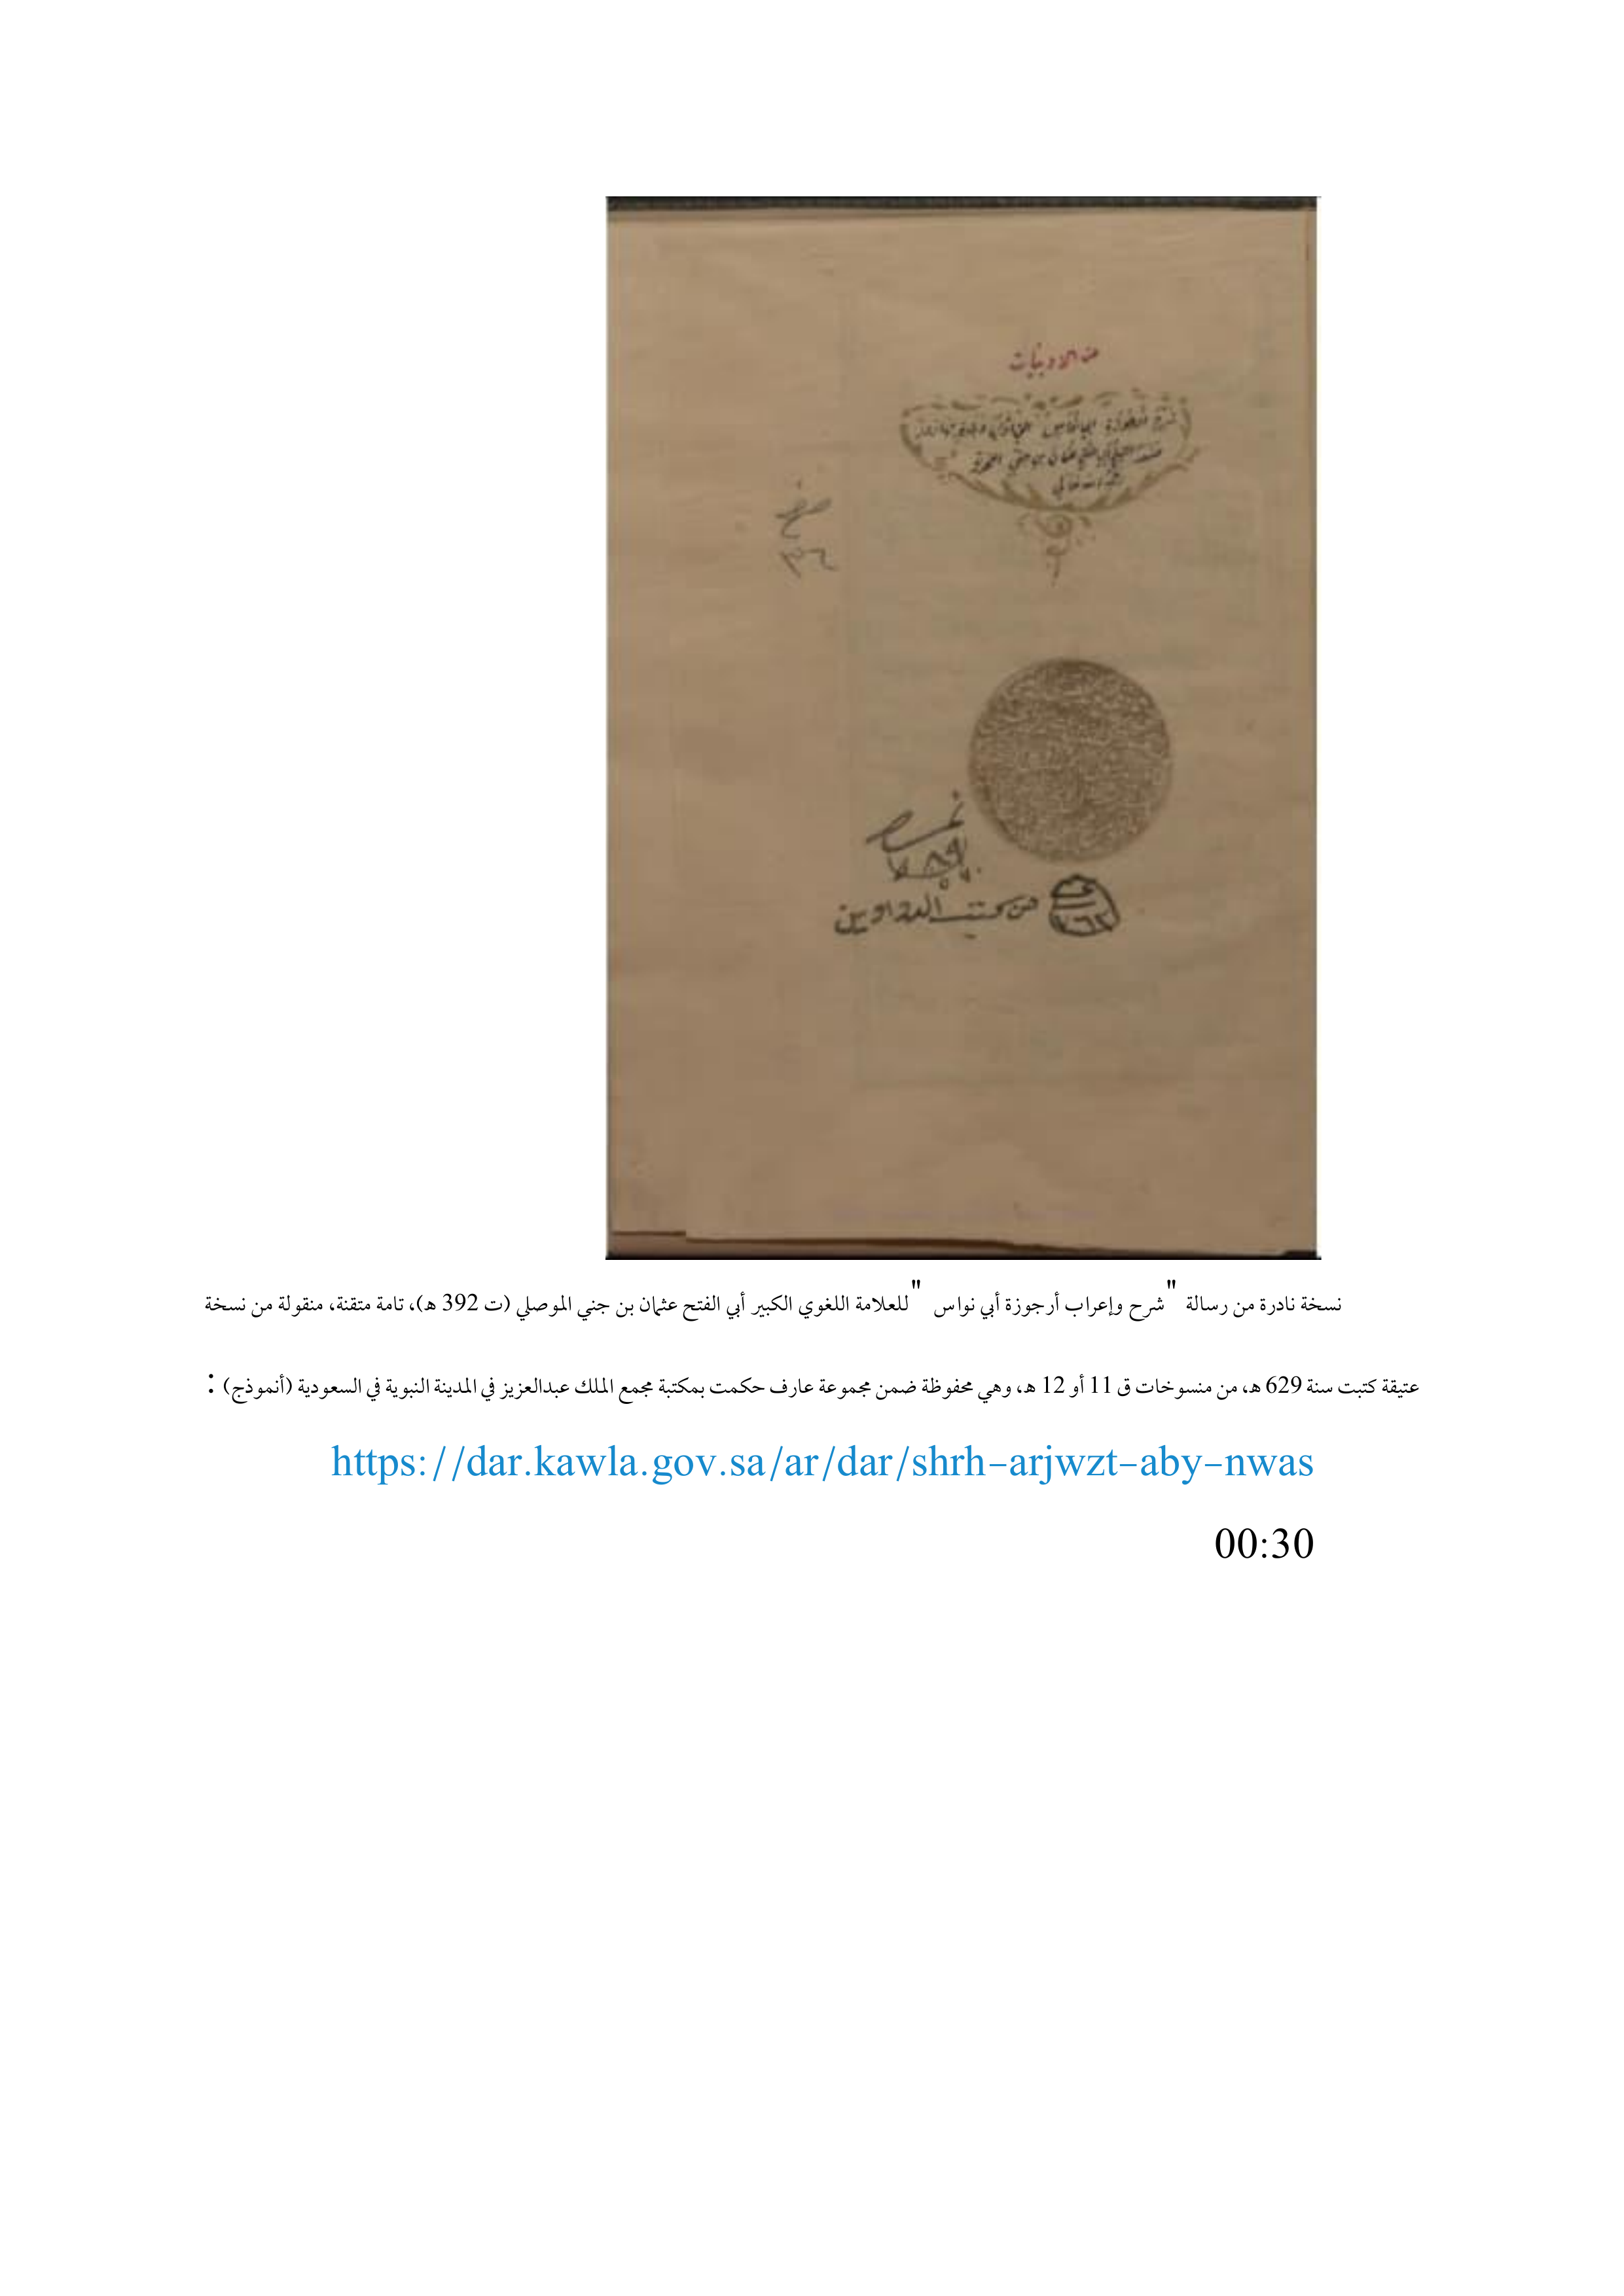 من الادبيات
صح
٣٦
نمره
من كتب الدواوين
نسخة نادرة من رسالة "شرح وإعراب أرجوزة أبي نواس "للعلامة اللغوي الكبير أبي الفتح عثمان بن جني الموصلي (ت 392 هـ)، تامة متقنة، منقولة من نسخة
عتيقة كتبت سنة 629 هـ، من منسوخات ق 11 أو 12 هـ، وهي محفوظة ضمن مجموعة عارف حكمت بمكتبة مجمع الملك عبدالعزيز في المدينة النبوية في السعودية (أنموذج) :
https://dar.kawla.gov.sa/ar/dar/shrh-arjwzt-aby-nwas
00:30